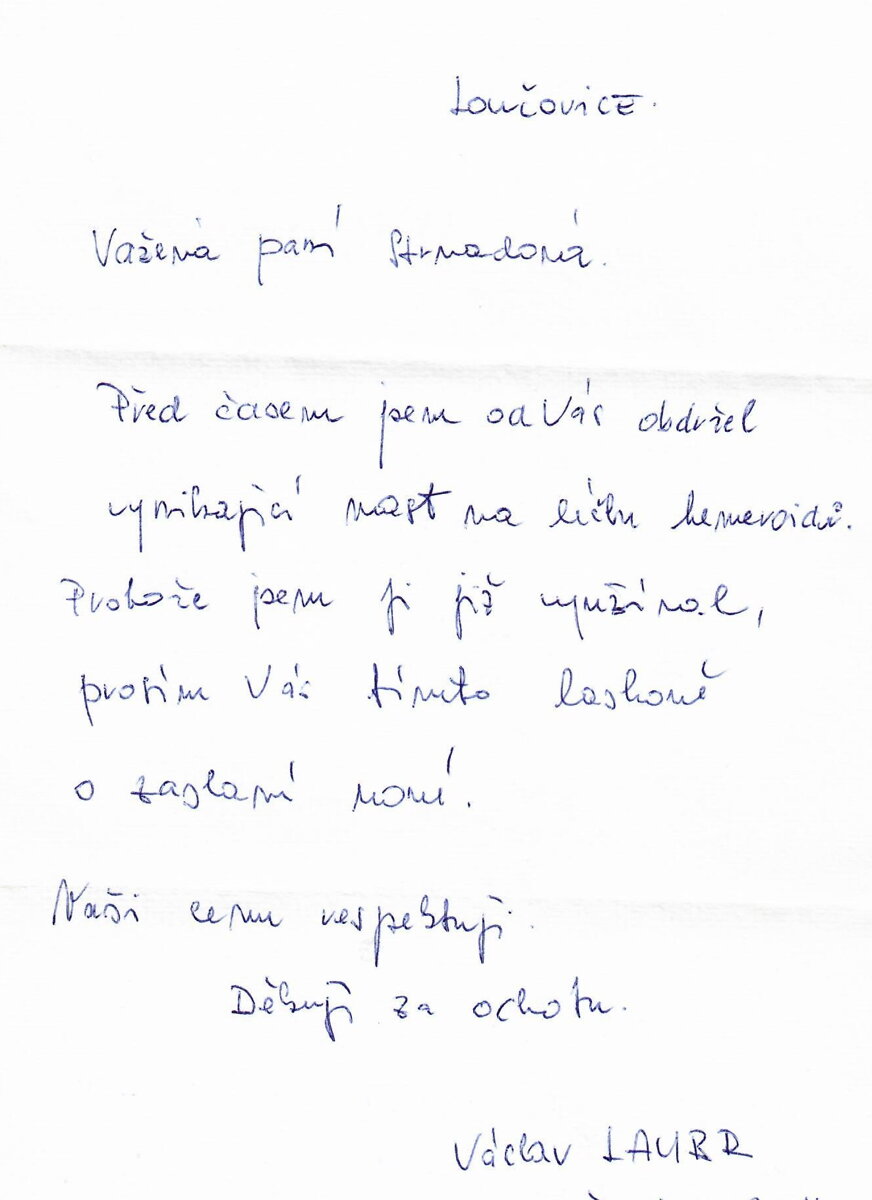 Loučovice.
Vážená paní Strnadová.
Před časem jsem od Vás obdržel
vynikající mast na léčbu hemeroidů.
Protože jsem ji již využíval,
prosím Vás tímto laskavě
o zaslání nové.
Vaši cenu respektuji.
Děkuji za ochotu.
Václav LAUBR